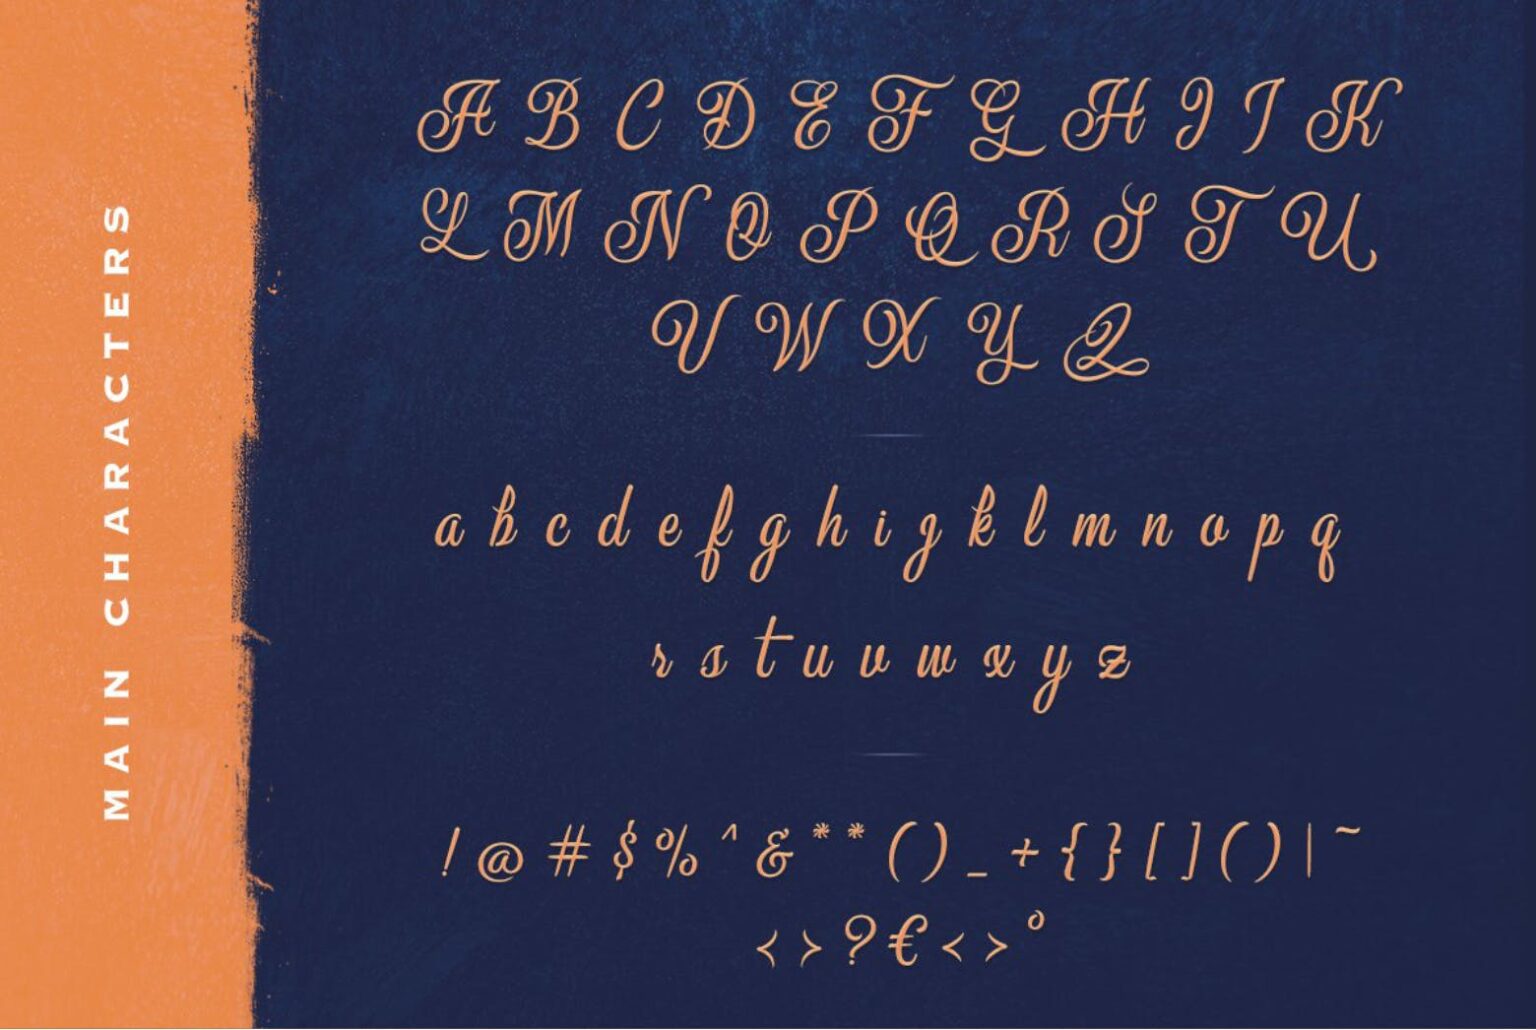 MAIN CHARACTERS
A B C D E F G H I J K
L M N O P Q R S T U
V W X Y Z
a b c d e f g h i j k l m n o p q
r s t u v w x y z
! @ # $ % ^ & * * ( ) _ + { } [ ] ( ) | ~
< > ? € < > °